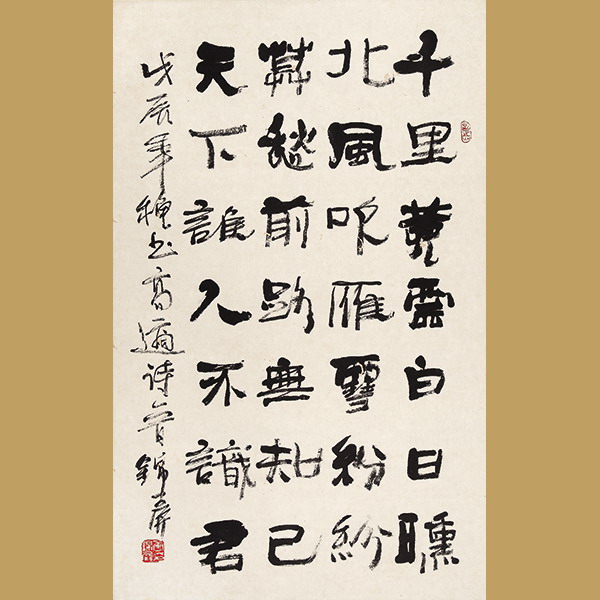 千里黄雲白日曛
北風吹雁雪紛紛
莫愁前路無知己
天下誰人不識君
戊辰年书高適诗首錦屏